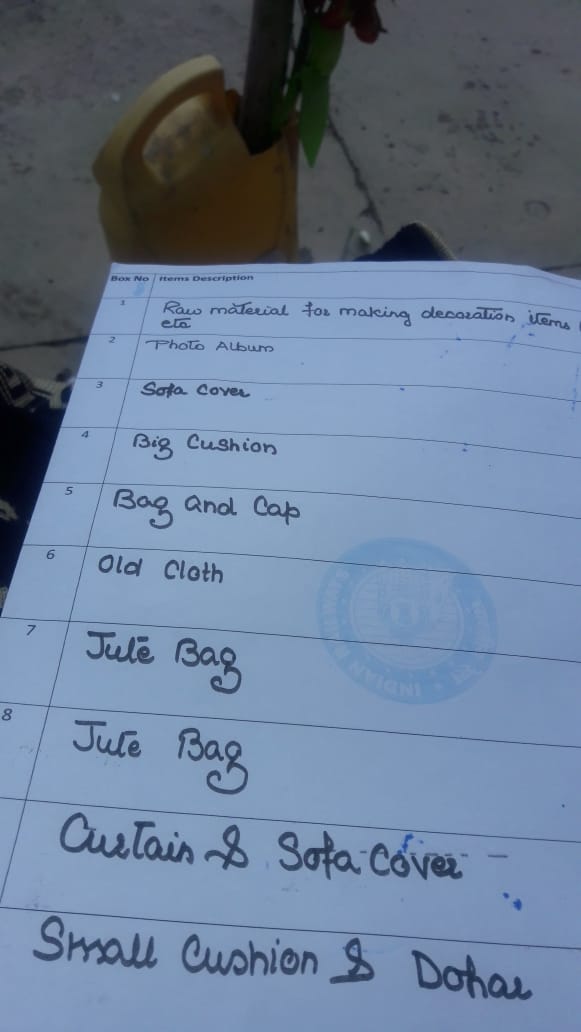 Box No Items Description
1 Raw material for making decoration items
etc
2 Photo Album
3 Sofa Cover
4 Big Cushion
5 Bag and Cap
6 Old Cloth
7 Jute Bag
8 Jute Bag
Curtain & Sofa Cover
Small Cushion & Dohar
INDIAN